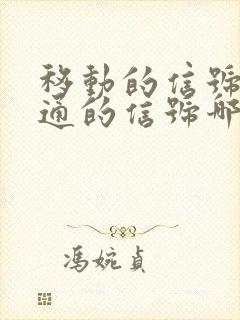 移動的信號
通的信號哪
馮婉貞